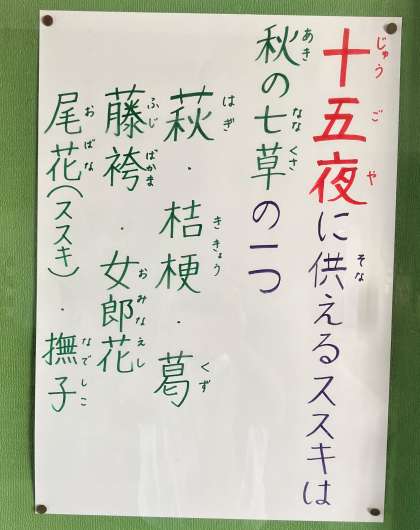 十五夜に供えるススキは
秋の七草の一つ
萩・桔梗・葛
藤袴・女郎花
尾花(ススキ)・撫子
じゅうごや
そな
あき
ななくさ
はぎ
ききょう
くず
ふじばかま
おみなえし
おばな
なでしこ